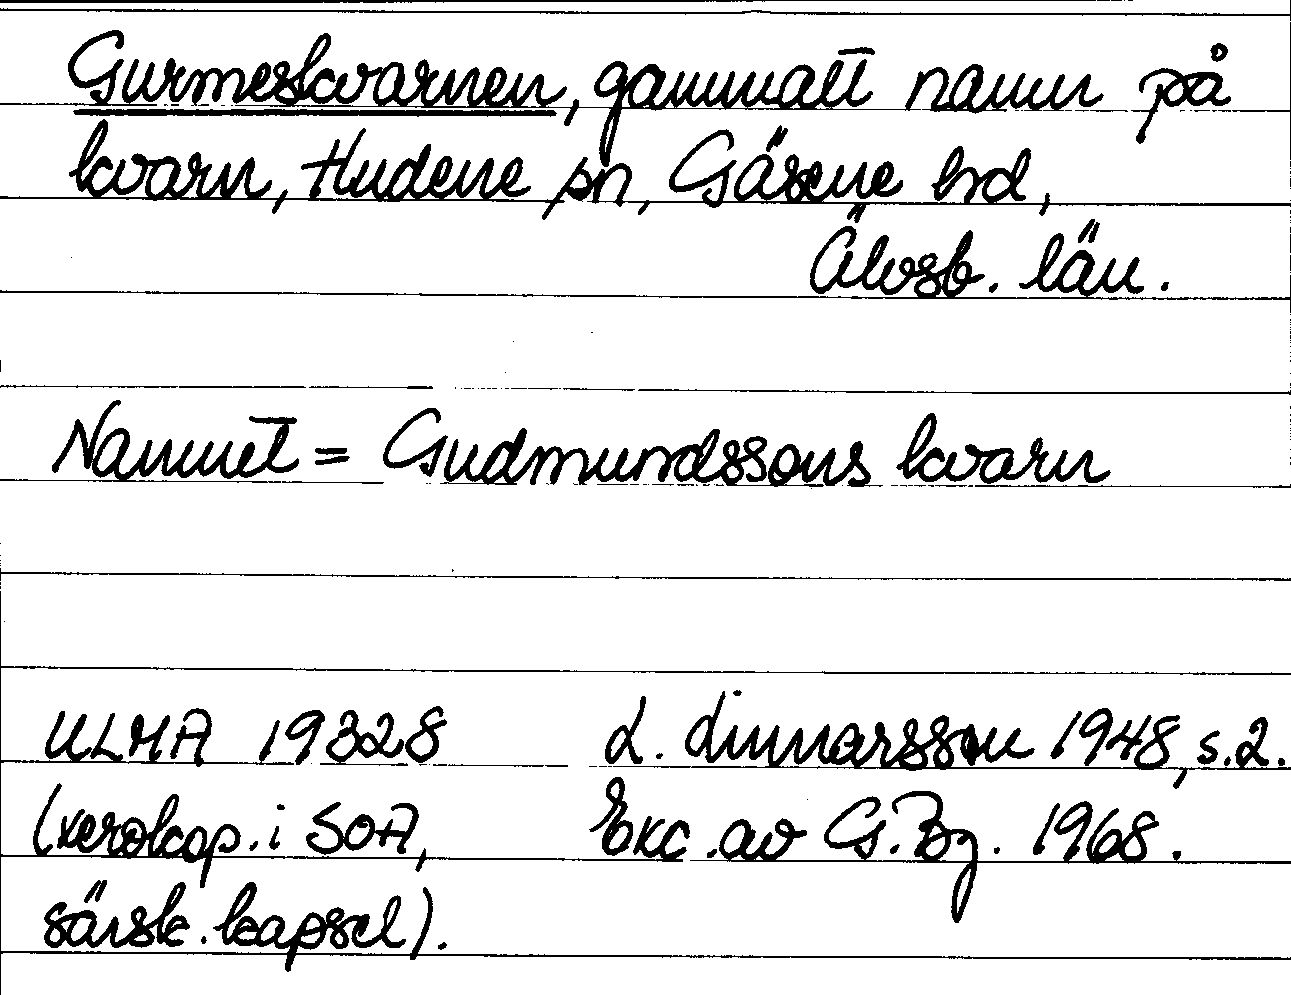 Gurmeskvarnen, gammalt namn på
kvarn, Hudene sn, Gäsene hd,
Älvsb. län.
Namnet = Gudmundssons kvarn
ULMA 19328 L. Linnarsson 1948, s. 2.
(xerokop. i SOA, Exc. av G. Bg. 1968.
särsk. kapsel).